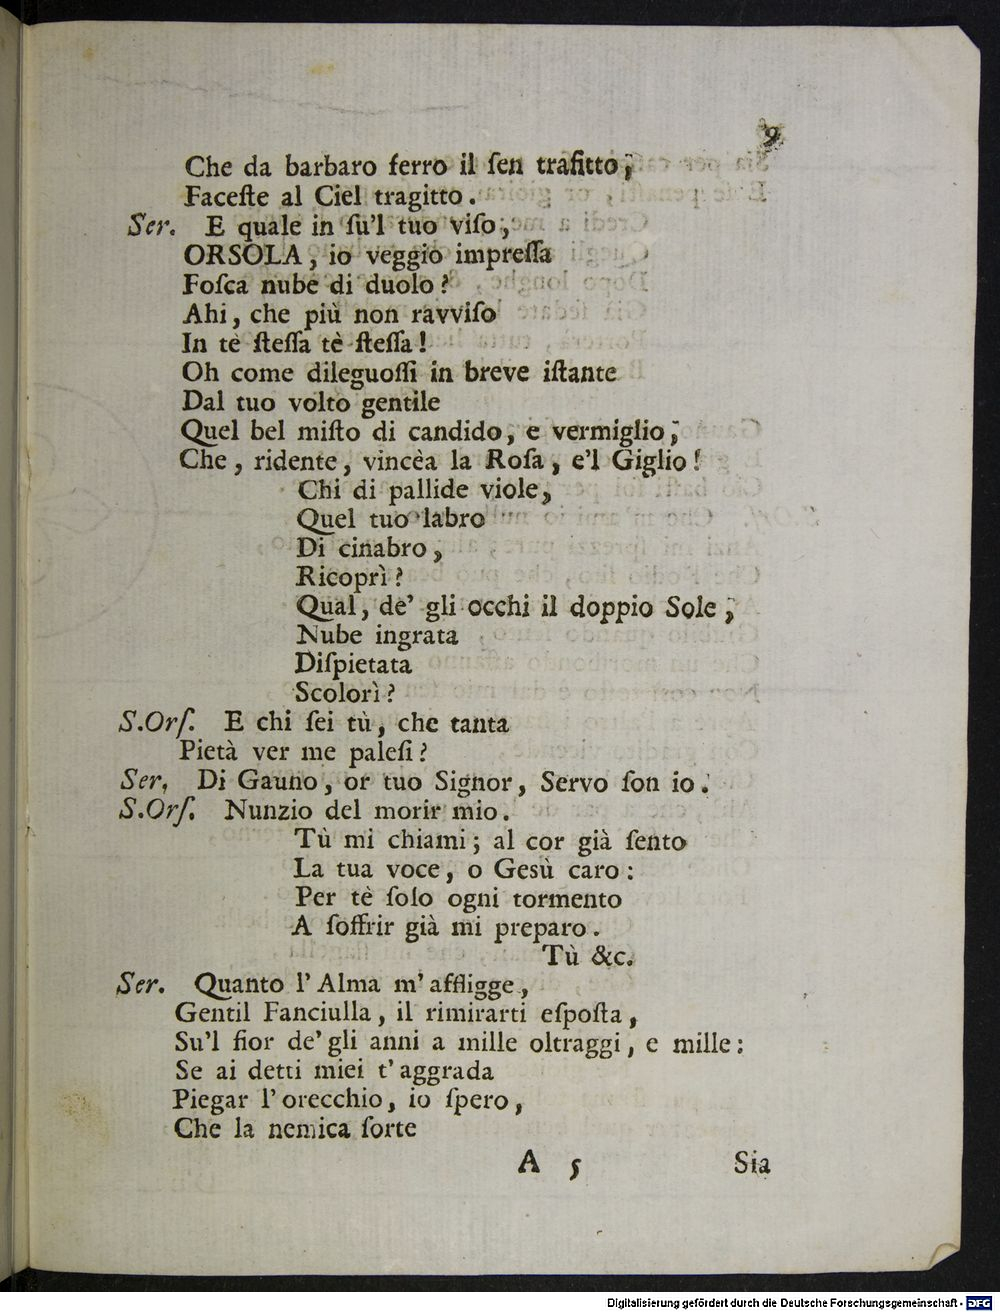 9
Che da barbaro ferro il ſen trafitto,
Faceſte al Ciel tragitto.
Ser. E quale in ſu'l tuo viſo,
ORSOLA, io veggio impreſſa
Foſca nube di duolo?
Ahi, che più non ravviſo
In tè ſteſſa tè ſteſſa!
Oh come dileguoſſi in breve iſtante
Dal tuo volto gentile
Quel bel miſto di candido, e vermiglio,
Che, ridente, vincèa la Roſa, e'l Giglio!
Chi di pallide viole,
Quel tuo labro
Di cinabro,
Ricoprì?
Qual, de' gli occhi il doppio Sole,
Nube ingrata
Diſpietata
Scolorì?
S.Orſ. E chi ſei tù, che tanta
Pietà ver me paleſi?
Ser. Di Gauno, or tuo Signor, Servo ſon io.
S.Orſ. Nunzio del morir mio.
Tù mi chiami; al cor già ſento
La tua voce, o Gesù caro:
Per tè ſolo ogni tormento
A ſoffrir già mi preparo.
Tù &c.
Ser. Quanto l'Alma m'affligge,
Gentil Fanciulla, il rimirarti eſpoſta,
Su'l fior de' gli anni a mille oltraggi, e mille:
Se ai detti miei t'aggrada
Piegar l'orecchio, io ſpero,
Che la nemica ſorte
A 5 Sia
Digitalisierung gefördert durch die Deutsche Forschungsgemeinschaft - DFG